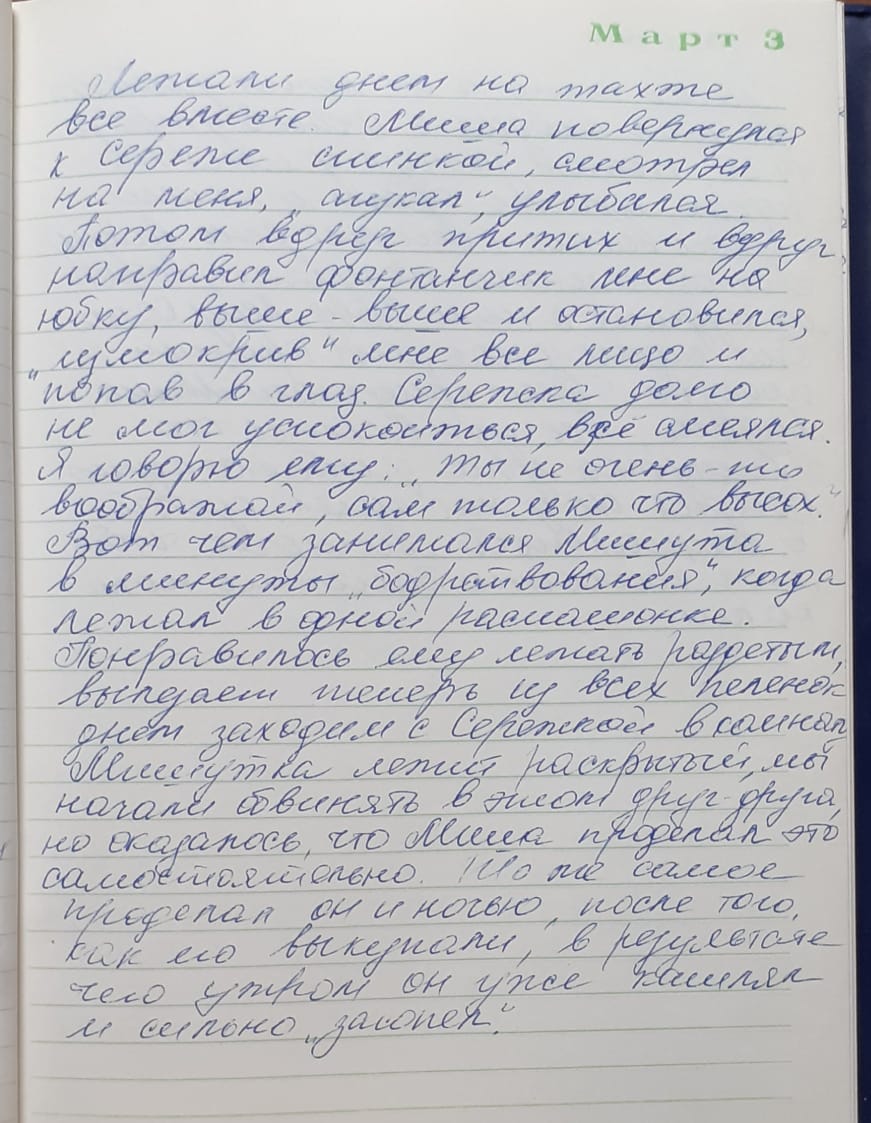 Март 3
Лежали днем на тахте
все вместе. Миша повернулся
к Сереже спинкой, смотрел
на меня, „агукал“, улыбался.
Потом вдруг притих и вдруг
направил фонтанчик мне на
юбку, выше - выше и остановился,
„измокрив“ мне все лицо и
попав в глаз. Сережка долго
не мог успокоиться, всё смеялся.
Я говорю ему: „Ты не очень-то
воображай, сам только что высох.“
Вот чем занимался Мишута
в минуты „бодрствования“, когда
лежал в одной распашонке.
Понравилось ему лежать раздетым,
вылезает теперь из всех пеленок
днем заходим с Сережкой в комнату
Мишутка лежит раскрытый, мы
начали обвинять в этом друг-друга,
но оказалось, что Миша проделал это
самостоятельно. То же самое
проделал он и ночью, после того,
как его выкупали, в результате
чего утром он уже кашлял
и сильно „засопел“.